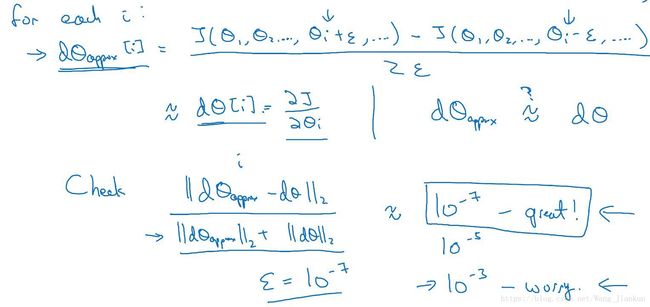 for each i:
→ dθapprox[i] = J(θ₁, θ₂, ..., θᵢ+ε, ...) - J(θ₁, θ₂, ..., θᵢ-ε, ...) / 2ε
≈ dθ[i] = ∂J/∂θᵢ | dθapprox ≈? dθ
i
Check ‖dθapprox - dθ‖₂ / ‖dθapprox‖₂ + ‖dθ‖₂ ≈ 10⁻⁷ - great! ←
→ 10⁻⁵
ε = 10⁻⁷ → 10⁻³ - worry. ←
https://blog.csdn.net/Wang_Jiankun